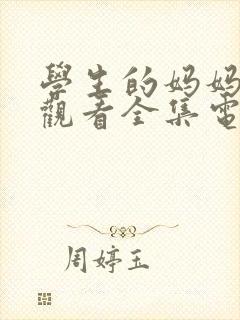 學生的妈妈
觀看全集電
周婷玉